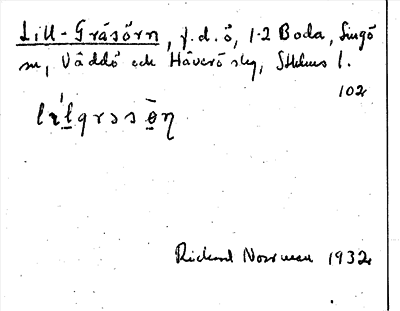 Lill-Gråsörn, f.d. ö, 1-2 Boda, Singö
sn, Väddö och Häverö slg, Sthlms l.
102
Rickard Norrman 1932